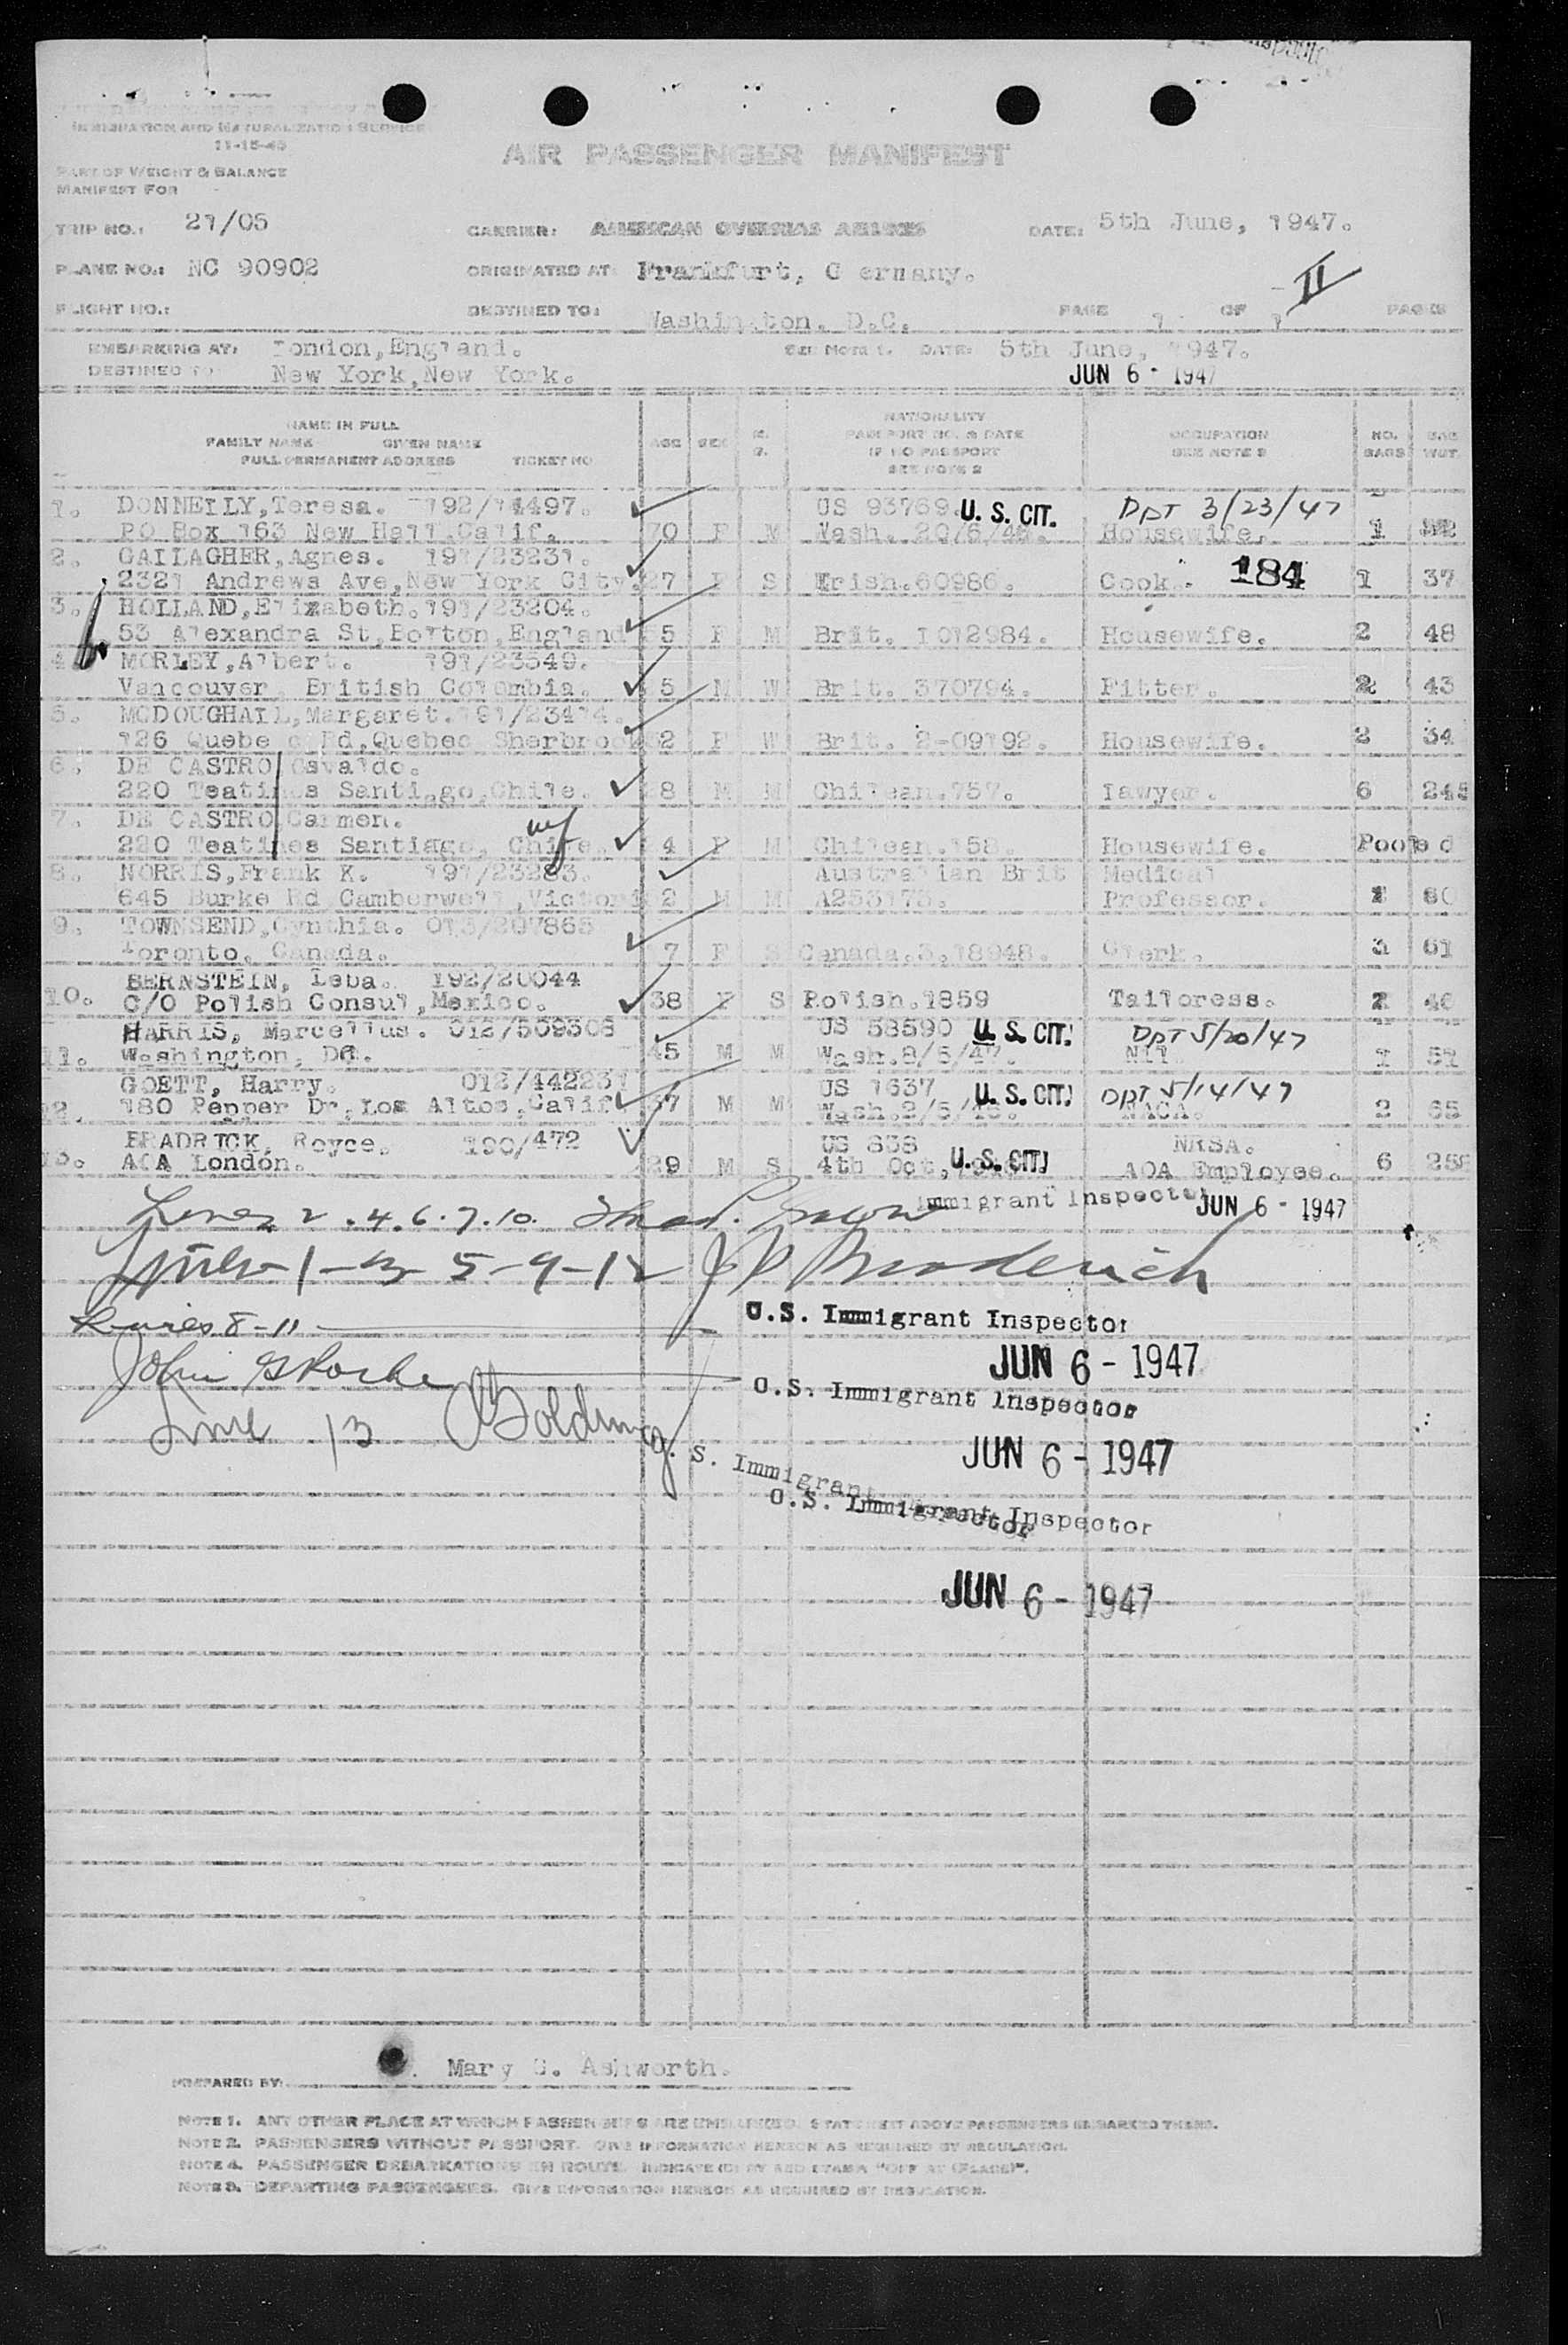 IMMIGRATION AND NATURALIZATION SERVICE
11-15-45
AIR PASSENGER MANIFEST
PART OF WEIGHT & BALANCE
MANIFEST FOR
TRIP NO.: 21/05 CARRIER: AMERICAN OVERSEAS AIRLINES DATE: 5th June, 1947.
PLANE NO.: NC 90902 ORIGINATED AT: Frankfurt, G ermany.
II
FLIGHT NO.: DESTINED TO: Washington, D.C. PAGE 1 OF 1 PAGES
EMBARKING AT: London,England. SEE NOTE 1. DATE: 5th June, 1947.
DESTINED TO New York,New York. JUN 6 - 1947
NAME IN FULL
FAMILY NAME GIVEN NAME
FULL PERMANENT ADDRESS TICKET NO
AGE SEX M. S.
NATIONALITY
PASSPORT NO. & DATE
IF NO PASSPORT
SEE NOTE 2
OCCUPATION
SEE NOTE 3
NO. BAGS
BAG WGT.
1. DONNELLY,Teresa. 192/14497. US 93769. U. S. CIT. DPT 3/23/47
PO Box 163 New Hall,Calif. 70 F M Wash. 20/6/46. Housewife. 1
2. GALLAGHER,Agnes. 191/23231.
2321 Andrews Ave,New York City. 27 F S Irish.60986. Cook. 184 1 37
3. HOLLAND,Elizabeth.191/23204.
53 Alexandra St,Bolton,England 5 F M Brit. 1012984. Housewife. 2 48
4. MORLEY,Albert. 191/23549.
Vancouver, British Colombia. 5 M W Brit. 370794. Fitter. 2 43
5. MCDOUGHALL,Margaret.191/23414.
126 Quebe c Rd,Quebec Sherbrook 2 F W Brit. 2-09192. Housewife. 2 34
6. DE CASTRO Osvaldo.
220 Teatinos Santiago,Chile. 8 M M Chilean.757. Lawyer. 6 245
7. DE CASTRO Carmen.
220 Teatines Santiago, Chile. 4 F M Chilean.158. Housewife. Poole d
8. NORRIS,Frank K. 191/23283. Australian Brit Medical
645 Burke Rd Camberwell,Victori 2 M M A253173. Professor. 1 60
9. TOWNSEND,Cynthia. 013/207865
Toronto, Canada. 7 F S Canada.3.18948. Clerk. 3 61
BERNSTEIN, Leba. 192/20044
10. C/O Polish Consul,Mexico. 38 F S Polish.1859 Tailoress. 2 46
HARRIS, Marcellus. 012/509308 US 58590 U. S. CIT. DPT 5/20/47
11. Washington, DC. 45 M M Wash.9/5/47. Nil 1 51
GOETT, Harry. 012/442231 US 1637 U. S. CIT. DPT 5/14/47
12. 180 Pepper Dr,Los Altos,Calif 37 M M NACA. 2 65
BRADRICK, Royce. 190/472 US 838 U. S. CIT. NRSA.
13. AOA London. 29 M S 4th Oct, AOA Employee. 6
Lines 2.4.6.7.10. Immigrant Inspector JUN 6 - 1947
1-3-5-9-12 J P Broderick
U.S. Immigrant Inspector
8-11
JUN 6 - 1947
John
U.S. Immigrant Inspector
Line 13 Golding
JUN 6 - 1947
U. S. Immigrant Inspector
U.S. Immigrant Inspector
JUN 6 - 1947
PREPARED BY: Mary C. Ashworth.
NOTE 1. ANY OTHER PLACE AT WHICH PASSENGERS ARE EMBARKED, STATE NEXT ABOVE PASSENGERS EMBARKED THERE.
NOTE 2. PASSENGERS WITHOUT PASSPORT. GIVE INFORMATION HEREON AS REQUIRED BY REGULATION.
NOTE 4. PASSENGER DEBARKATIONS EN ROUTE. INDICATE (D) BY RED STAMP "OFF AT (PLACE)".
NOTE 3. DEPARTING PASSENGERS. GIVE INFORMATION HEREON AS REQUIRED BY REGULATION.